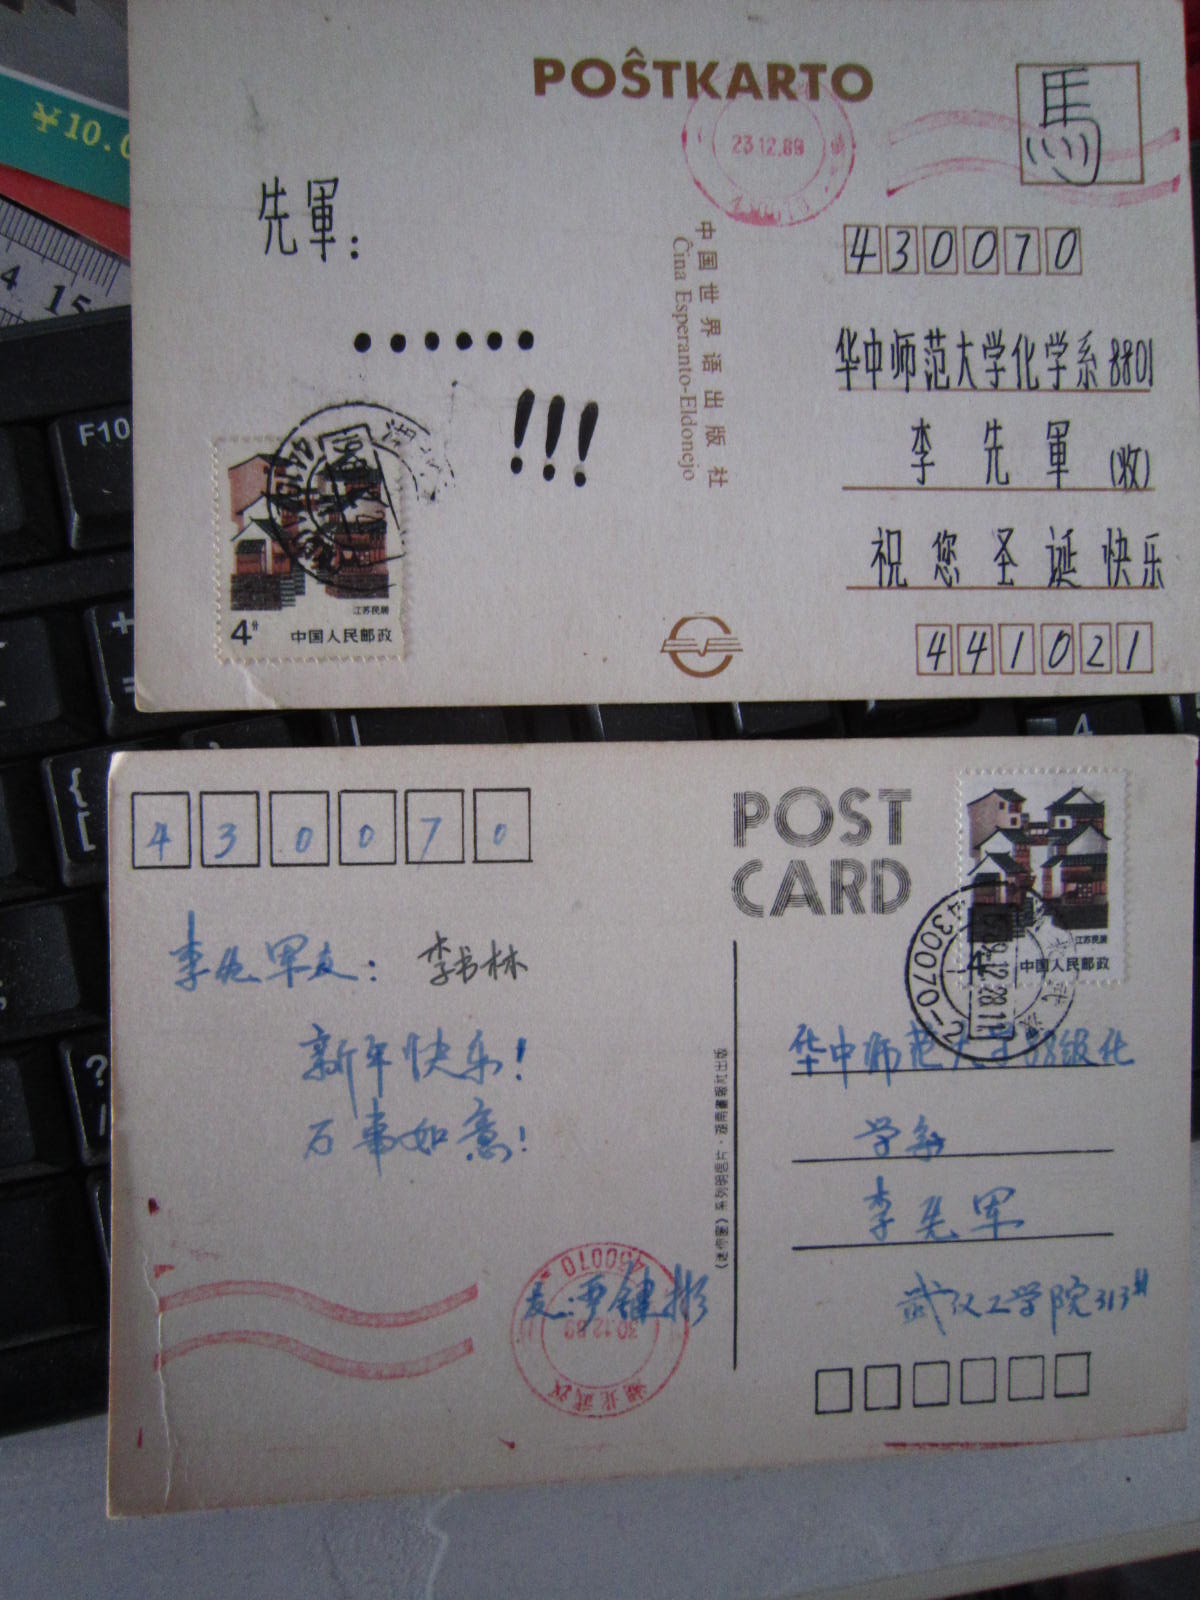 ¥10.0
4 15
F10
POŜTKARTO
23.12.89
馬
先軍:
......
!!!
中国世界语出版社
Ĉina Esperanto-Eldonejo
430070
华中师范大学化学系8801
李先軍(收)
祝您圣诞快乐
441021
江苏民居
4分 中国人民邮政
4
{
[
?
/
430070
POST
CARD
江苏民居
4分 中国人民邮政
430070-2
李先军友: 李书林
新年快乐!
万事如意!
友:覃健彬
450070
30.12.89
湖北武汉
《迷你屋》系列明信片·湖南画报社出版
华中师范大学88级化
学系
李先军
武汉工学院313#